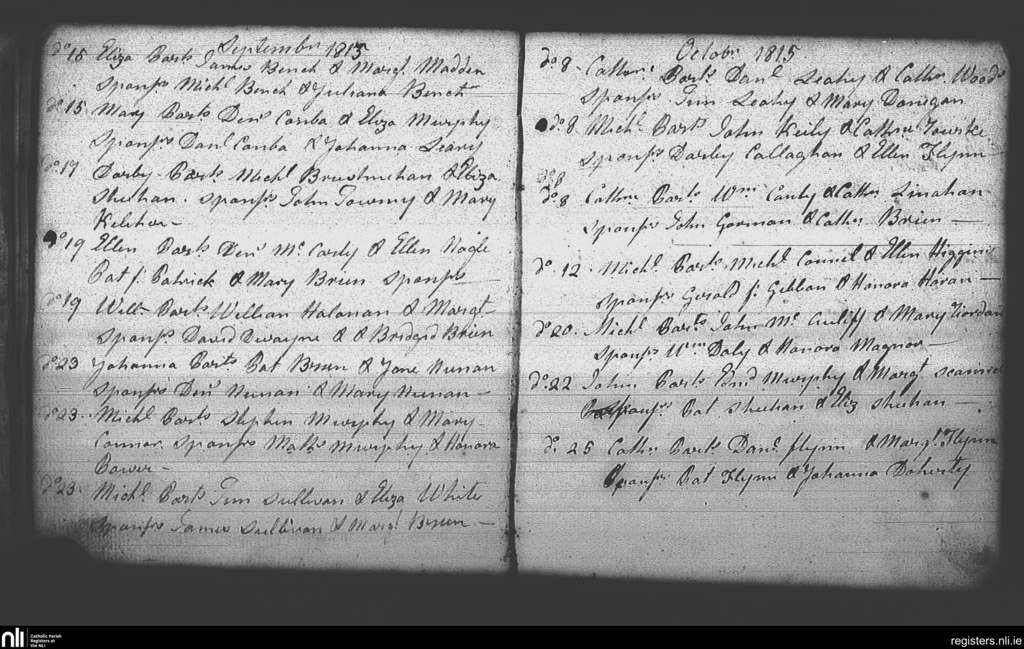 September 1815
do 15 Eliza Parts James Bench & Margt. Madden
Sponsrs Michl Bench & Juliana Bench
do 15 Mary Parts Denis Conba & Eliza Murphy
Sponsrs Danl Conba & Johanna Leary
do 17 Darby Parts Michl & Eliza
Sheehan. Sponsrs John Twomy & Mary
Keleher
do 19 Ellen Parts Denis Mc Carty & Ellen Nagle
Pat f. Patrick & Mary Brien Sponsrs
do 19 Willm Parts William Halonan & Margt
Sponsrs David Dwayne & Bridgid Brien
do 23 Johanna Parts Pat Brien & Jane Nunan
Sponsrs Denis Nunan & Mary Nunan
do 23 Michl Parts Stephen Murphy & Mary
Connor Sponsrs Matts Murphy & Honora
Power
do 23 Michl Parts Tim Sullivan & Eliza White
Sponsrs James Sullivan & Margt Brien
Octobr 1815
do 8 Cathne Parts Danl Leahy & Cathn Woods
Sponsrs Tim Leahy & Mary Donigan
do 8 Michl Parts John Keily & Cathne
Sponsrs Darby Callaghan & Ellen Flynn
do 8
do 8 Cathne Parts Wm Carty & Cathn Linahan
Sponsrs John Gorman & Cathn Brien
do 12 Michl Parts Michl Connel & Ellen Higgins
Sponsrs Gerald f: Gibbon & Honora Horan
do 20 Michl Parts John Mc Auliff & Mary Riordan
Sponsrs Wm Daly & Honora Magnor
do 22 John Parts Edmd Murphy & Margt
Sponsrs Pat Sheehan & Eliz Sheehan
do 25 Cathn Parts Danl Flynn & Margt Flynn
Sponsrs Pat Flynn & Johanna Doherty
nli Catholic Parish
Registers at
the NLI
registers.nli.ie